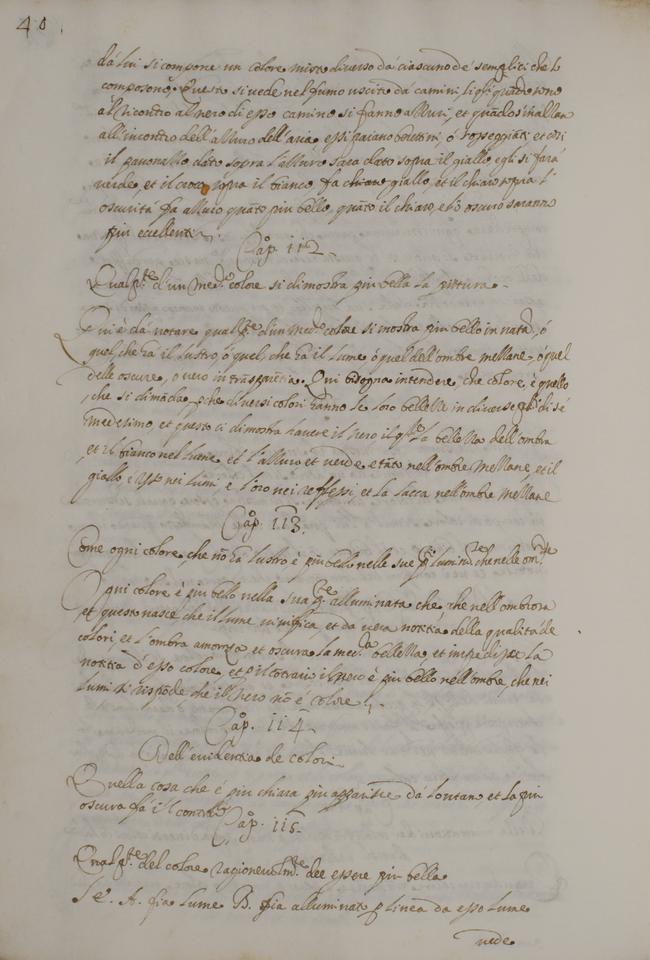 40.
da lui si compone un colore misto diverso da ciascuno de semplici che lo
composono. Questo si vede nel fumo uscito da camini li q.li quando sono
al ricontro al nero di esso camino si fanno azzuri, et quādo s'inalzan
all'incontro dell'azzuro dell'aria essi paiano berettini, ó rosseggiāti et cosi
il pavonazzo dato sopra l'azzuro sara dato sopra il giallo egli si fará
verde, et il croco sopra il bianco fa giallo et il chiaro sopra l'
oscuritá fa azzuro quāto piu bello, quāto il chiaro, e l'o oscuro saranno
piu eccellenti.
Cap.º 112.
Qual p.te d'un med.º colore si dimostra piu bella la pittura.
Qui é da notare qual p.te d'un med.º colore si mostra piu bello in nat.ª, ó
quel, che ha il lustro, ó quel, che há il lume ó quel dell'ombre mezzane, ó quel
delle oscure, o vero in trāsparētia. Qui bisogna intendere, che colore, é quello
, che si dimāda, p che diversi colori hanno le loro bellezze in diverse p.ti di sé
medesimo, et questo ci dimostra havere il nero il q.le la bellezza dell'ombra
, et il bianco nel lume, et l'azzuro et verde, e tāto nell'ombre mezzane, et il
giallo, e rosso nei lumi, é l'oro nei reflessi, et la lacca nell'ombre mezzane
Cap.º 113.
Come ogni colore, che nō há lustro é piu bello nelle sue p.ti lumin.te che nelle om.te
Ogni colore é piu bello nella sua p.te alluminata che, che nell'ombrosa
et questo nasce, che il lume vivifica, et da vera notitia della qualitá de
colori, et l'ombra amorza, et oscura la med.ª bellezza, et impedisce la
notitia d'esso colore, et s'il contrario il nero é piu bello nell'ombre, che nei
lumi si rispōde che il nero nō é colore.
Cap.º 114.
Dell'evidentia de colori.
Quella cosa che é piu chiara piu apparisce da lontano et la piu
oscura fá il contr.º
Cap.º 115.
Qual p.te del colore ragionevolm.te dee essere piu bella
Se. A. sia lume B. sia alluminat p linea da esso lume
vede